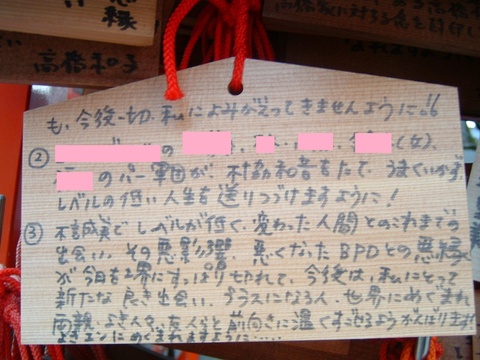 悪縁
高橋和子
も、今後一切、私によみがえってきませんように!!
② の 、 ・ 、 (女)、
のバー軍団が、不協和音をたて、うまくいかず
レベルの低い人生を送りつづけますように!
③ 不誠実でレベルが低く、変わった人間とのこれまでの
出会い、その悪影響、悪くなったBPDとの悪縁
が今日を境にすっぱり切れて、今後は、私にとって
新たな良き出会い、プラスになる人、世界にめぐまれ
両親、よき人々、友人らと前向きに温くすごせるようがんばります!
よきエンにめぐまれますように……